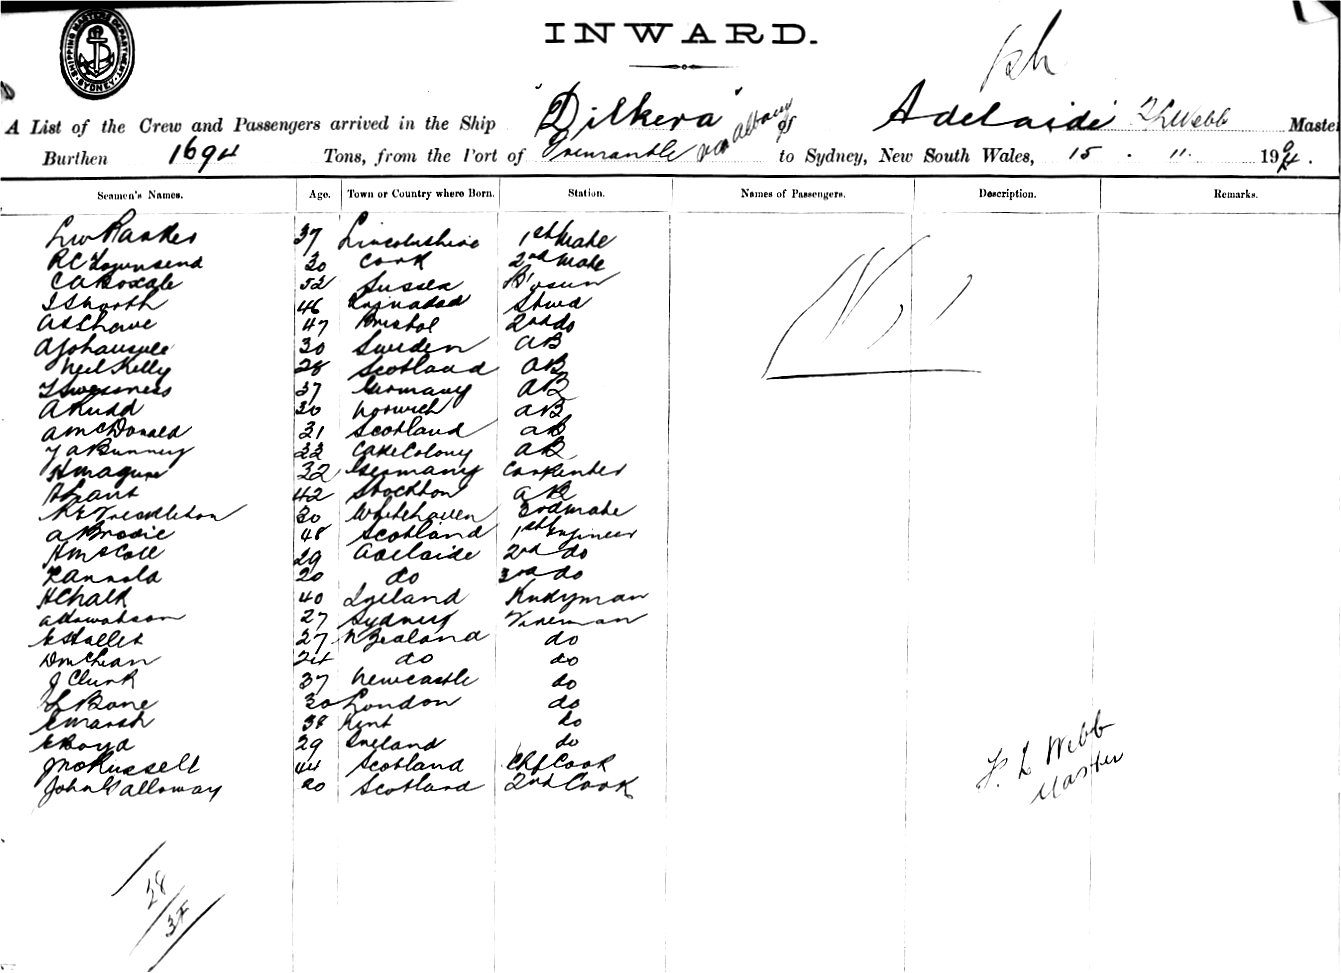 SHIPPING MASTER'S DEPARTMENT SYDNEY
INWARD.
A List of the Crew and Passengers arrived in the Ship "Dilkera" Adelaide F L Webb Master
Burthen 1694 Tons, from the Port of Fremantle via Albany to Sydney, New South Wales, 15 . 11 194.
Seamen's Names. Age. Town or Country where Born. Station. Names of Passengers. Description. Remarks.
37 Lincolnshire 1st Mate
R C Townsend 30 Cork 2nd Mate
C A Boxale 52 Sussex Bosun
46 Trinadad Stwd
47 Bristol 2nd do
30 Sweden AB
Neil Kelly 28 Scotland AB
37 Germany AB
A Rudd 30 Norwich AB
A McDonald 31 Scotland AB
Cape Colony AB
H Maguire 32 Germany Carpenter
42 Stockton AB
30 Whitehaven 3rd Mate
A Brodie 48 Scotland 1st Engineer
H McColl 29 Adelaide 2nd do
20 do 3rd do
H Chalk 40 Ireland
27 Sydney Fireman
27 N Zealand do
D McLean 24 do do
J Clunk 37 Newcastle do
L Bone 30 London do
E Marsh 38 Kent do
E Boyd 29 Ireland do
Jno Russell 44 Scotland Chf Cook
John Galloway 20 Scotland 2nd Cook
Nil
F. L Webb
Master
28